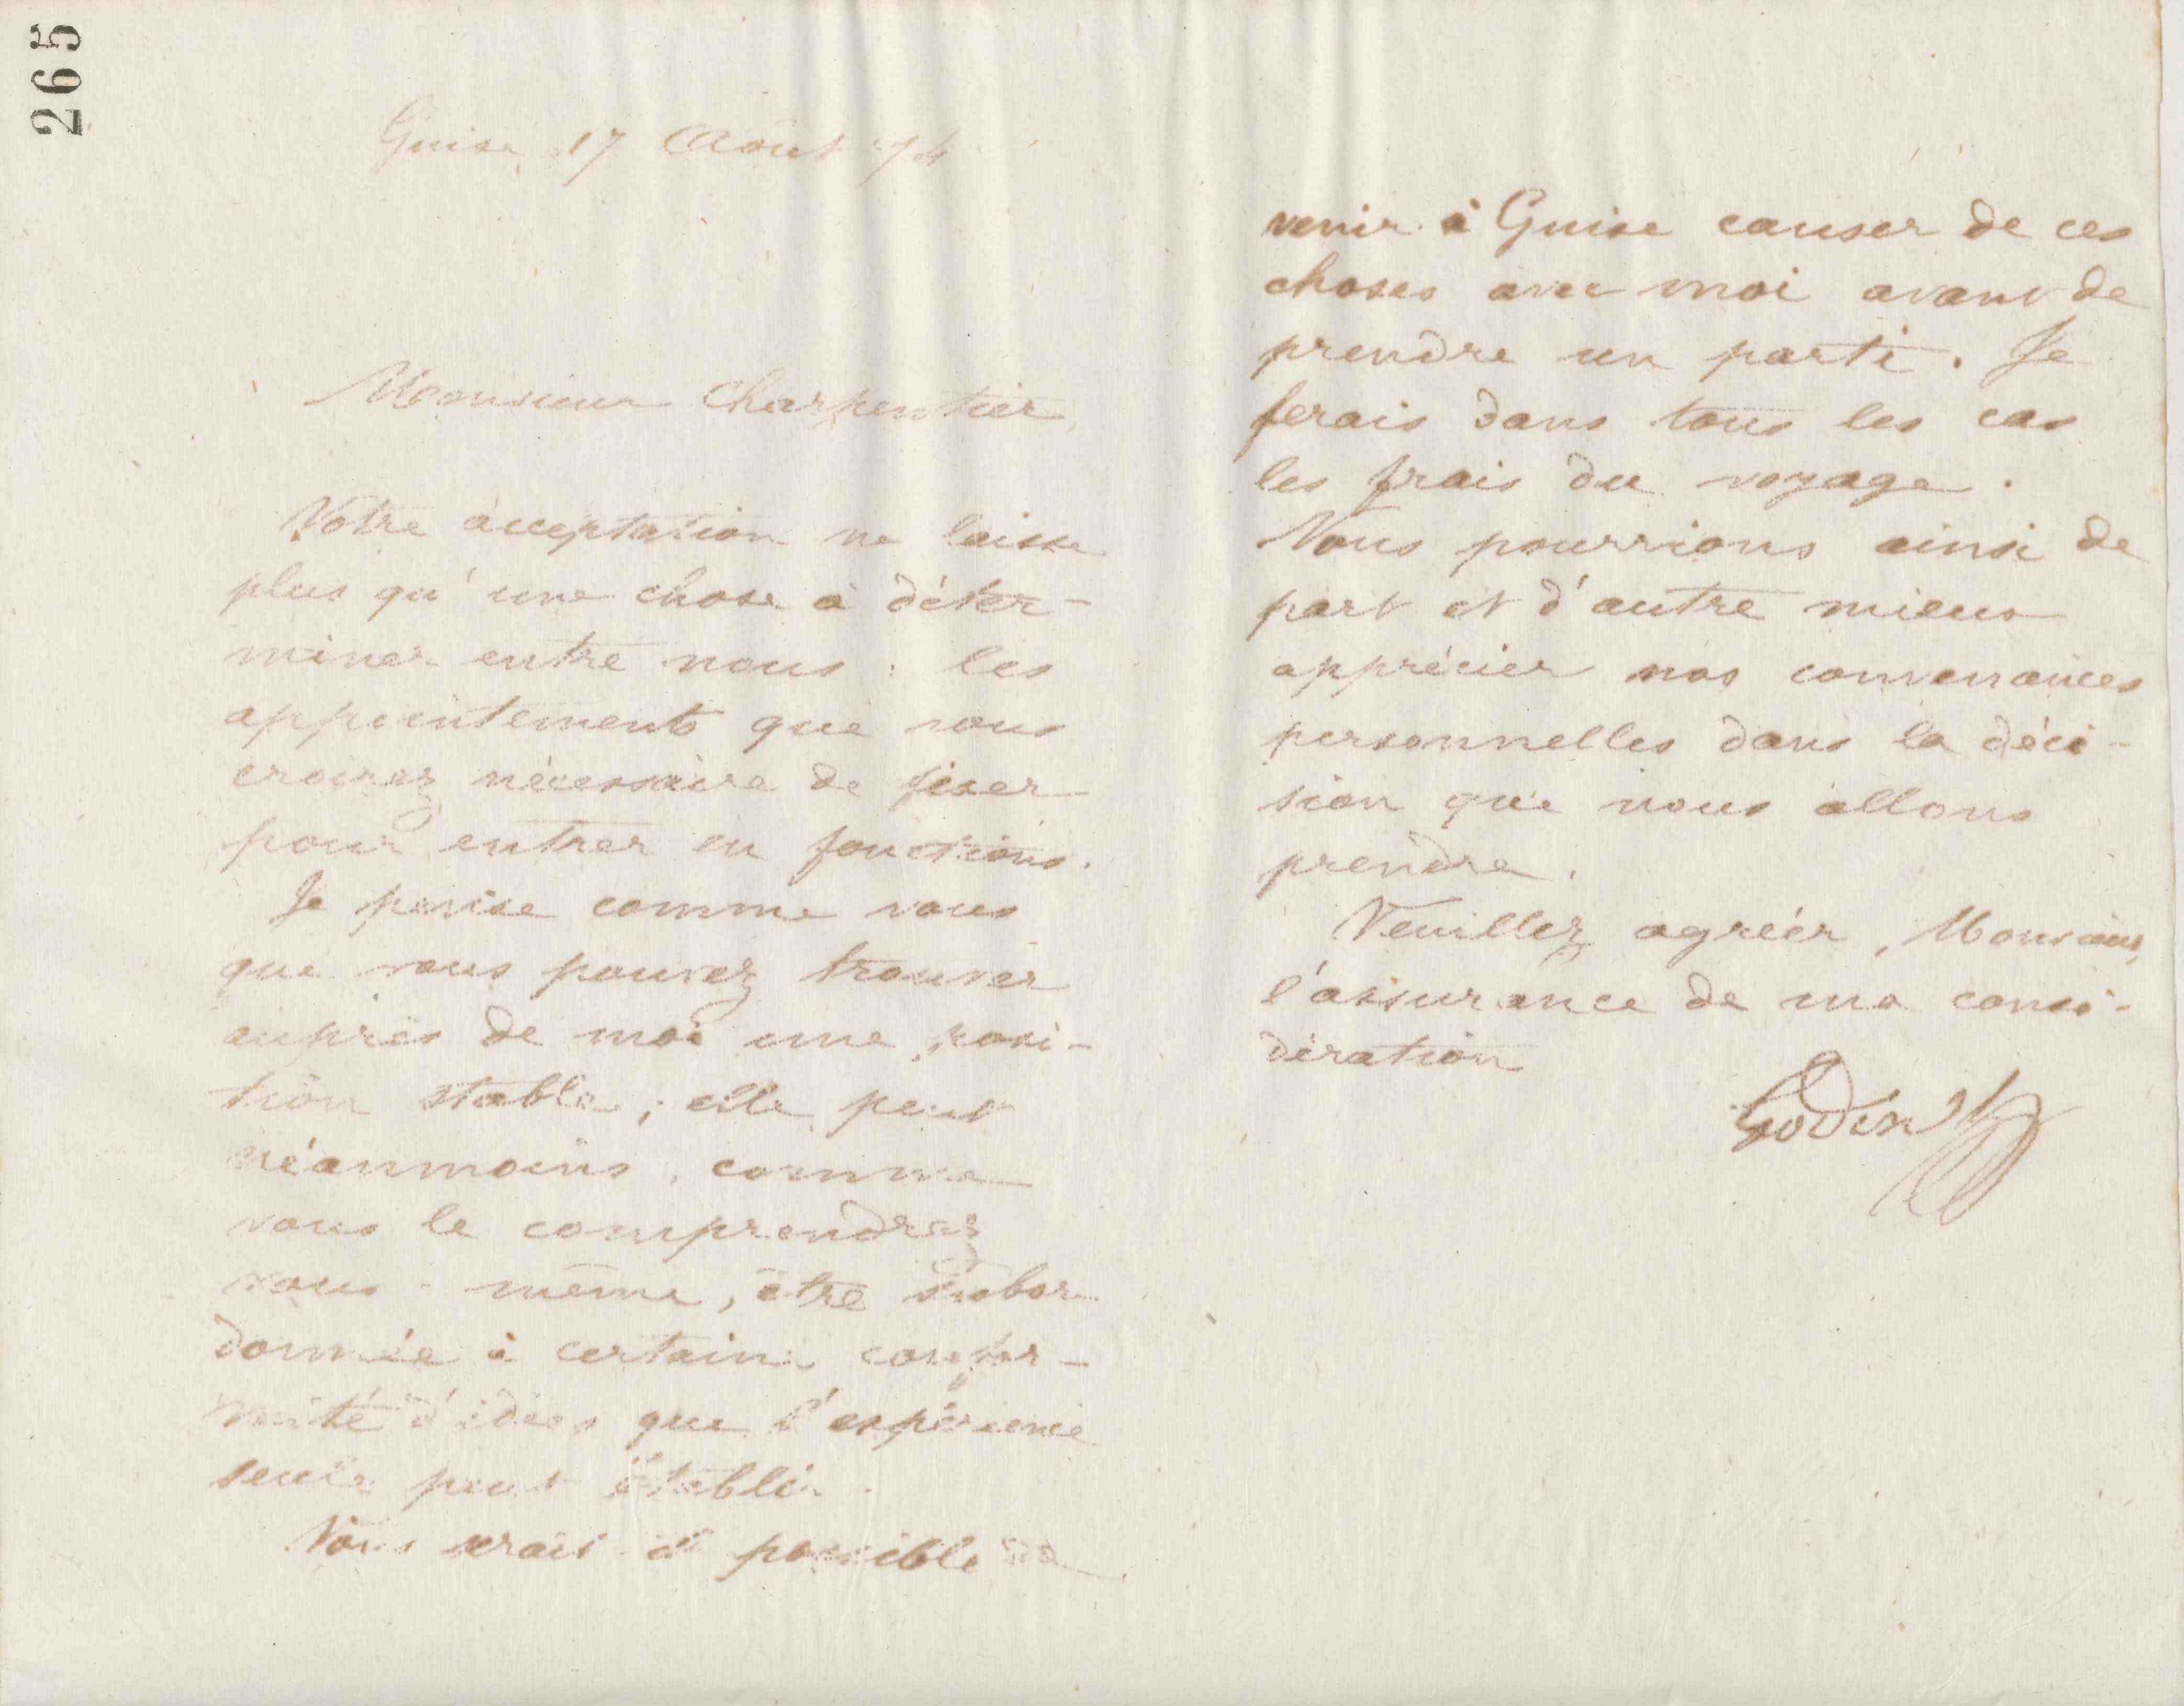 265
Guise 17 Août 74
Monsieur Charpentier,
Votre acceptation ne laisse
plus qu'une chose à déter-
miner entre nous : les
appointements que vous
croirez nécessaire de fixer
pour entrer en fonctions.
Je pense comme vous
que vous pouvez trouver
auprès de moi une posi-
tion stable ; elle peut
néanmoins, comme
vous le comprendrez
vous-même, être subor-
donnée à certaine confor-
mité d'idées que l'expérience
seule peut établir.
Vous serait il possible de
venir à Guise causer de ces
choses avec moi avant de
prendre un parti. Je
ferais dans tous les cas
les frais du voyage.
Nous pourrions ainsi de
part et d'autre mieux
apprécier nos convenances
personnelles dans la déci-
sion que nous allons
prendre.
Veuillez agréer, Monsieur,
l'assurance de ma consi-
dération
Godin